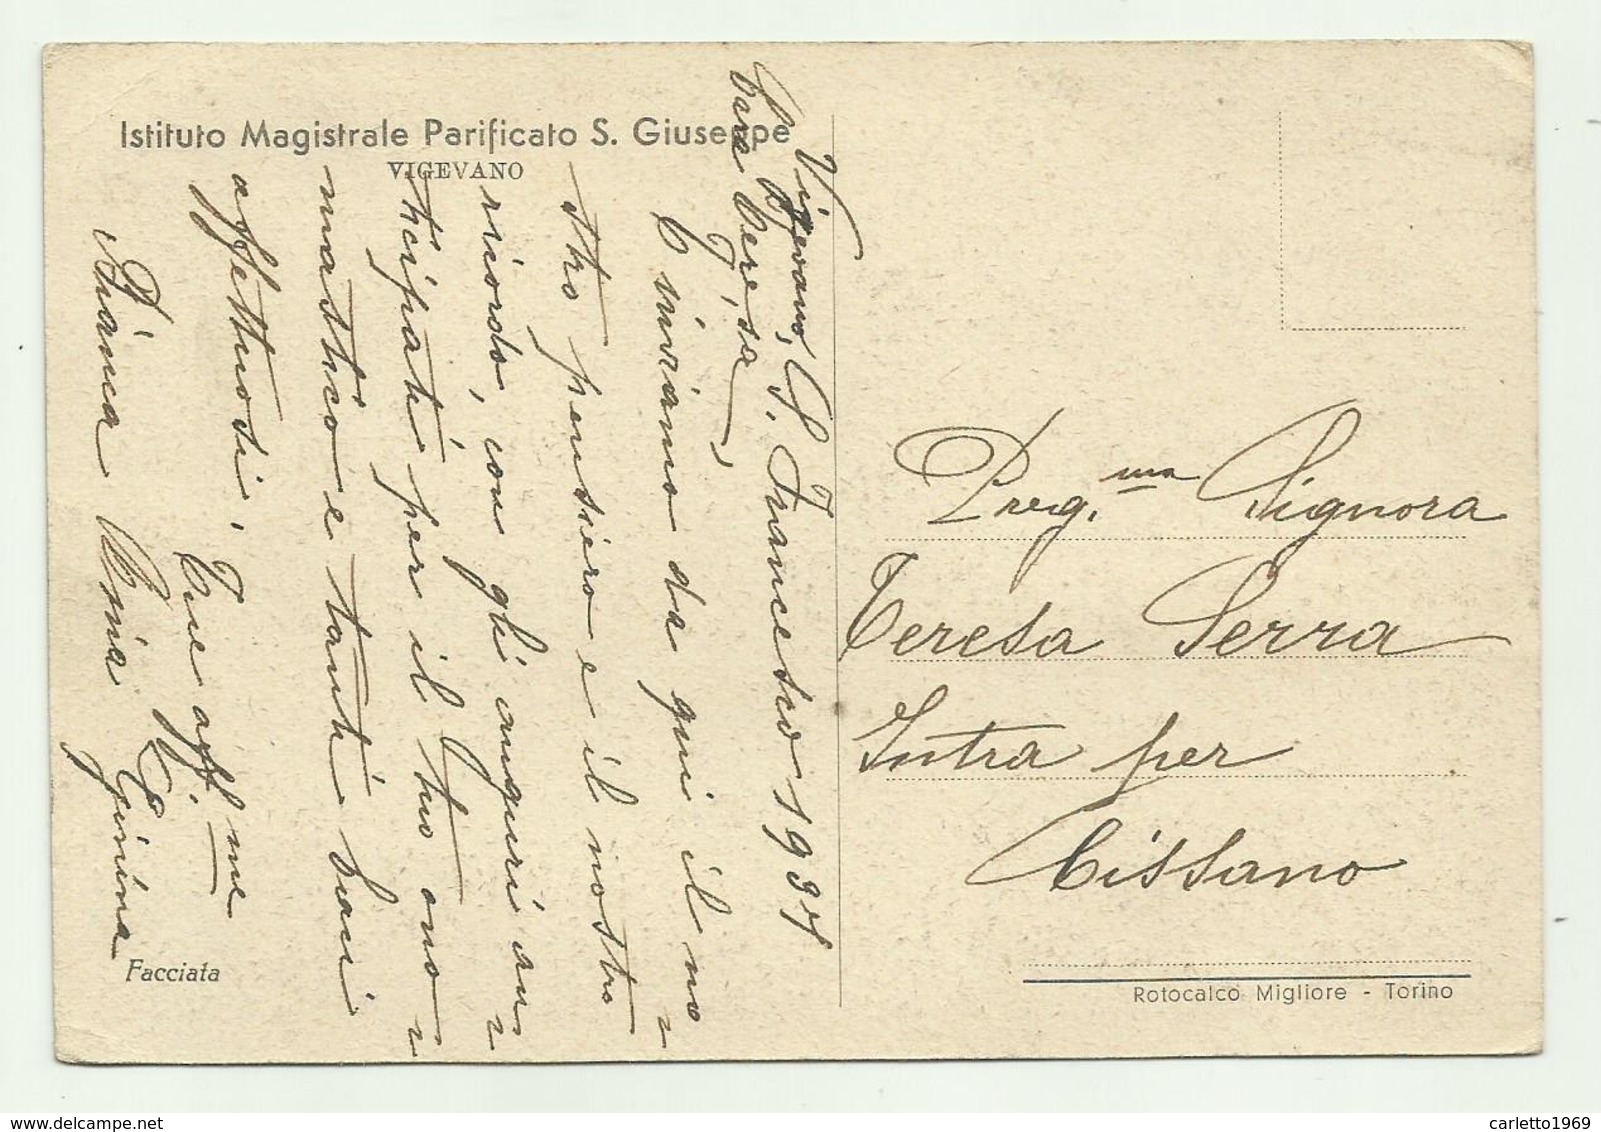 Istituto Magistrale Parificato S. Giuseppe
VIGEVANO
Vigevano, S. Francesco 1937
Cara Teresa,
T'inviamo da qui il no
stro pensiero e il nostro
ricordo, con gli auguri an
ticipati per il tuo ono
mastico e tanti baci
affettuosi.
Tue aff.me
Bianca Ninia Gina
Facciata
Preg.ma Signora
Teresa Serra
Intra per
Bissano
Rotocalco Migliore - Torino
www.delcampe.net
carletto1969